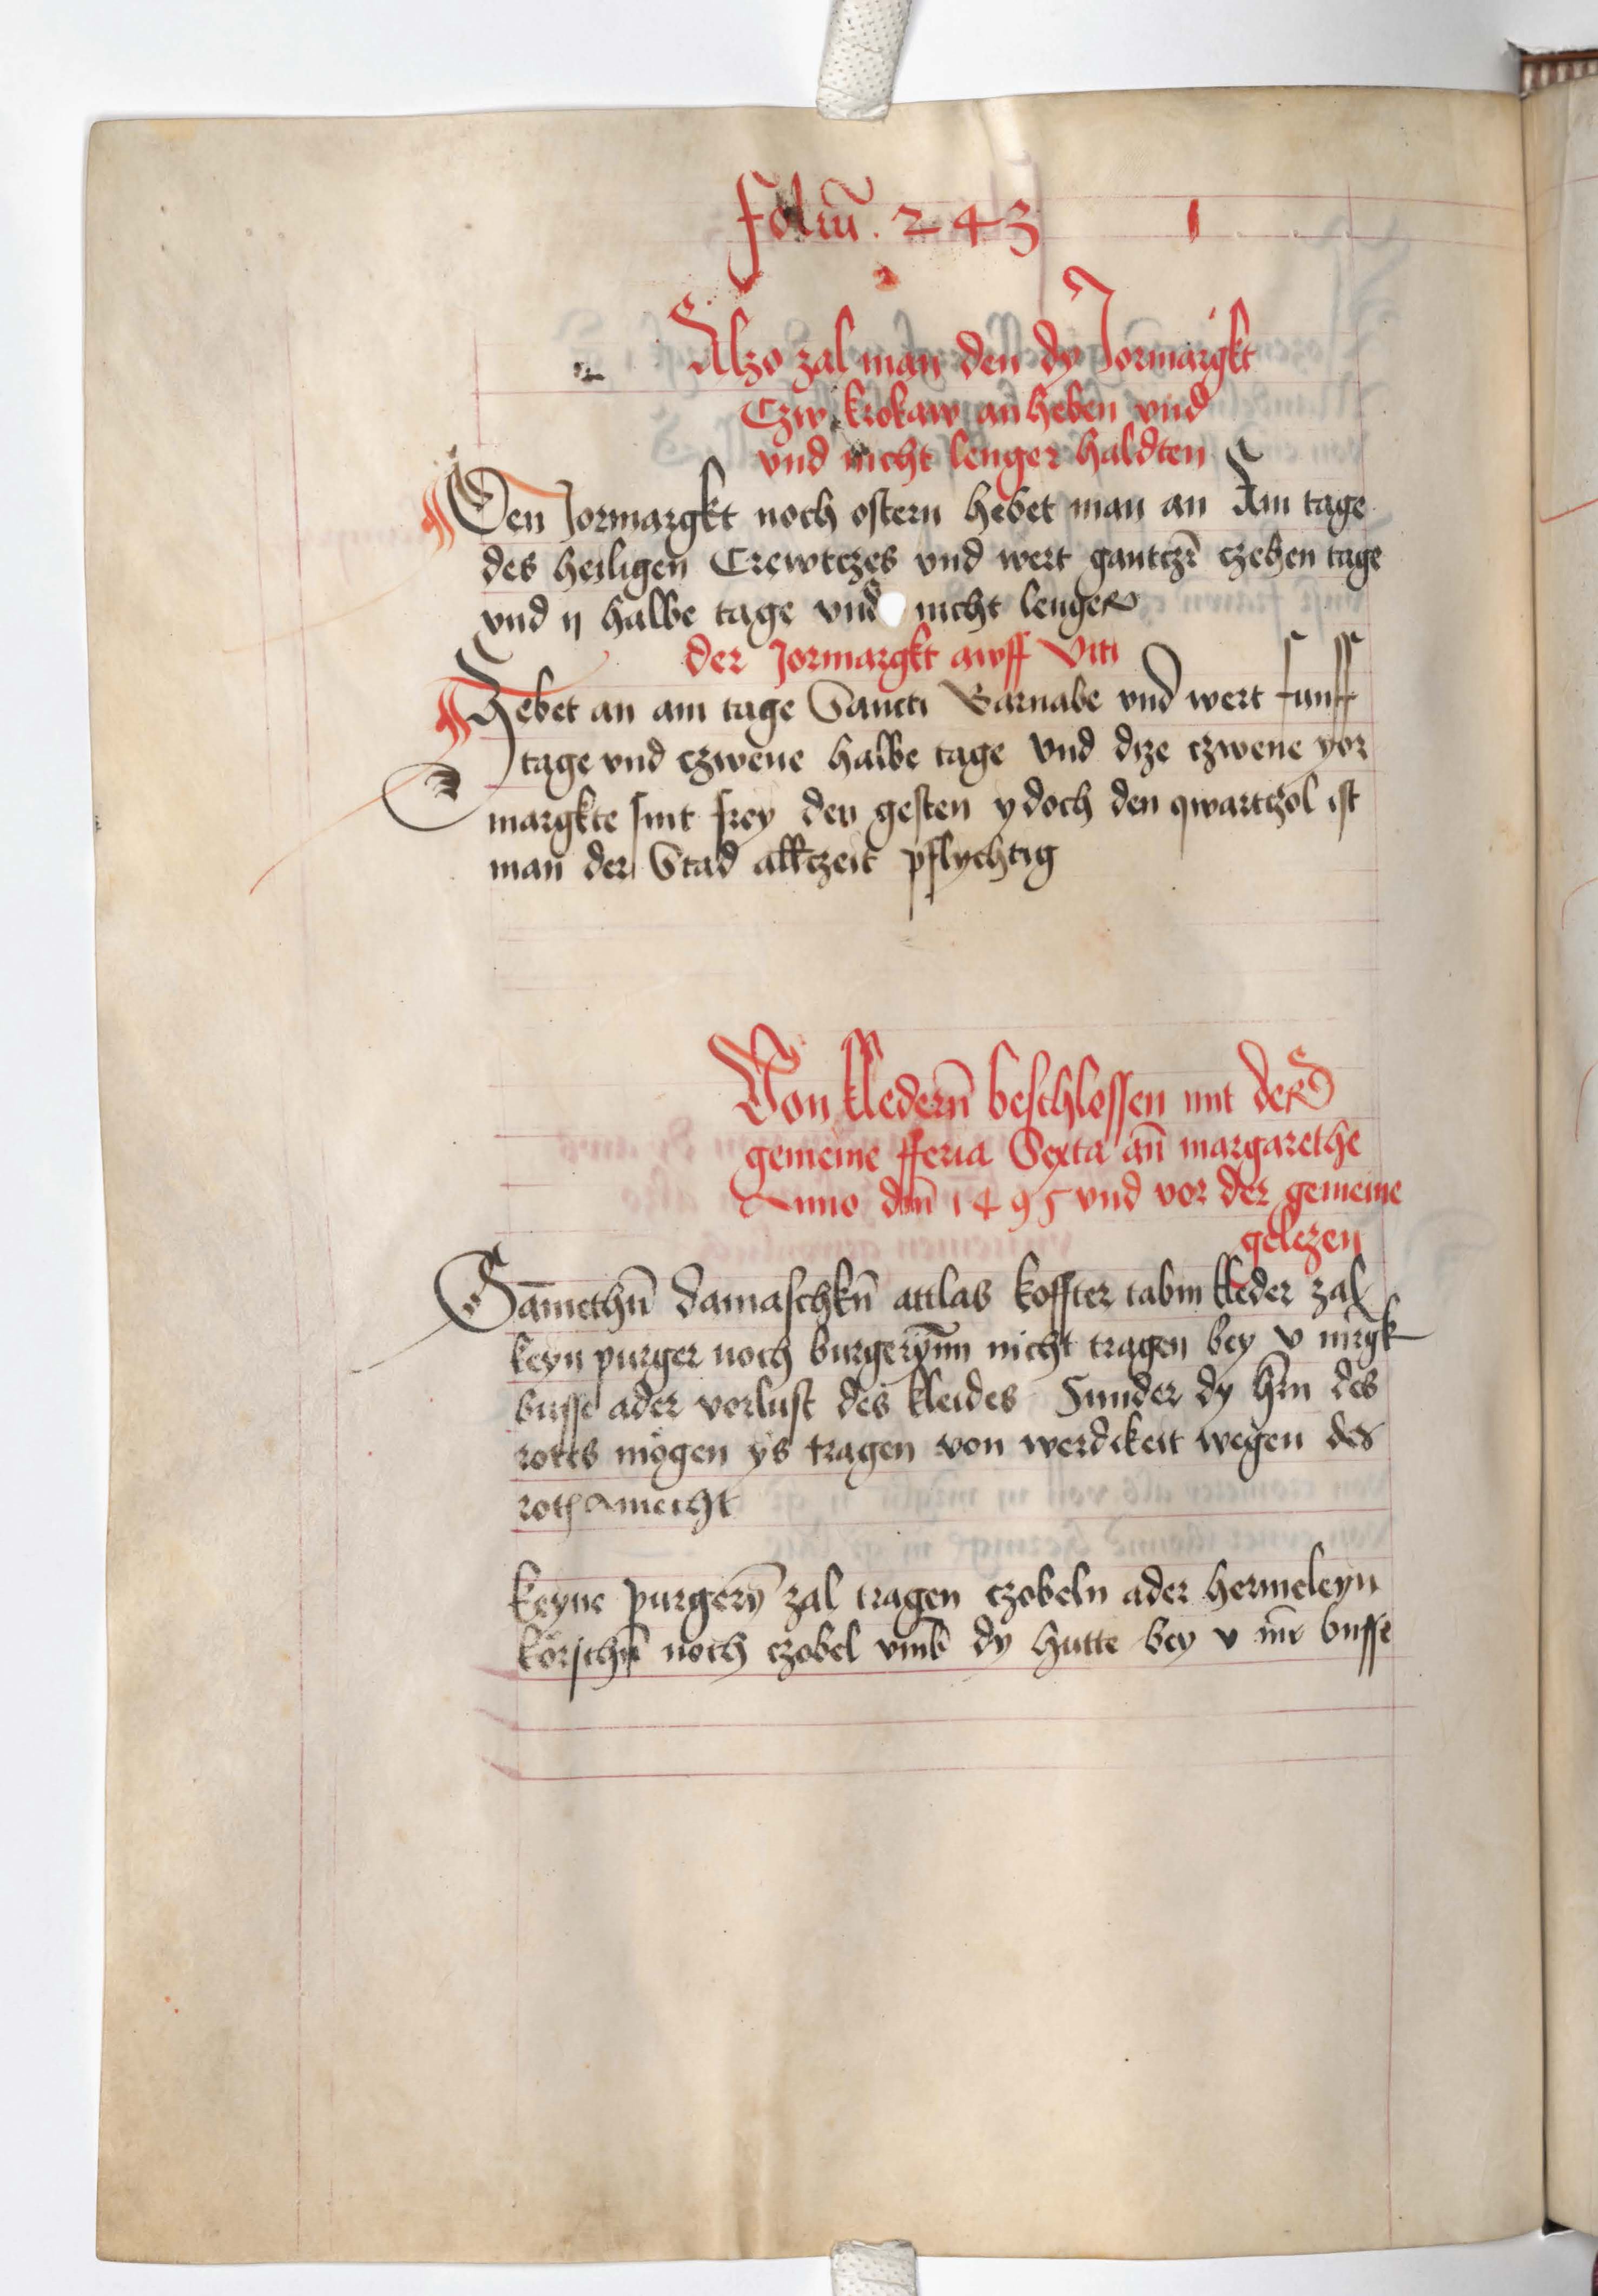 foliū. 243
Alzo zal man den dy Jormargkt
Czw krokaw an heben vnd
vnd nicht lenger haldten
Den Jormargkt noch ostern hebet man an Am tage
des heiligen Crewtczes vnd wert gantczē czehen tage
vnd ij halbe tage vnd nicht lenger
der Jormargkt awff Viti
Hebet an am tage Sancti Barnabe vnd wert funff
tage vnd czwene halbe tage vnd dize czwene yor
margkte sint frey den gesten ydoch den qwartczol ist
man der Stad allczeit pflychtig
Von kledern̄ beschlossen mit der
gemeine fferia Sexta an̄ margarethe
Anno dnī 1495 vnd vor der gemeine
gelezen
Sāmethn̄ damaschkn̄ attlas koffter tabin kleder zal
keyn purger noch burgerynn nicht tragen bey v mrgk
busse ader vorlust des kleides Sunder dy hrn̄ des
rotts mögen ys tragen von werdikeit wegen des
roth amecht
Keyne purgerȳ zal tragen czobeln ader hermeleyn
körschn̄ noch czobel vmb dy hutte bey v mr̄ busse